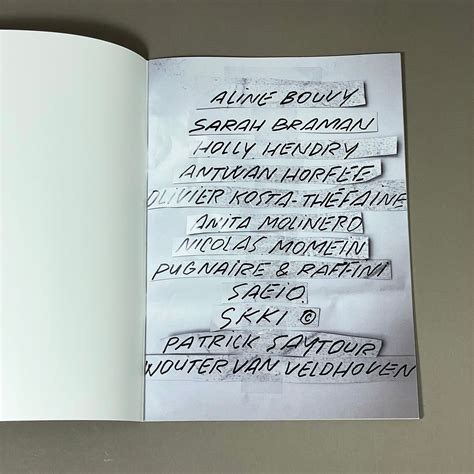 ALINE BOUVY
SARAH BRAMAN
HOLLY HENDRY
ANTWAN HORFEE
OLIVIER KOSTA-THÉFAINE
ANITA MOLINERO
NICOLAS MOMEIN
PUGNAIRE & RAFFINI
SAEIO
SKKI ©
PATRICK SAYTOUR
WOUTER VAN VELDHOVEN